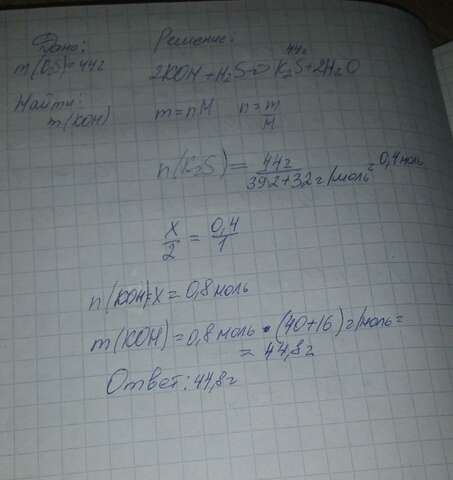 Дано:
m(K₂S)=44г
Найти:
m(KOH)
Решение.
44г
2KOH+H₂S=>K₂S+2H₂O
m=nM n=m/M
n(K₂S)=44г/39·2+32г/моль=0,4моль
X/2=0,4/1
n(KOH)=X=0,8моль
m(KOH)=0,8моль·(40+16)г/моль=
=44,8г
Ответ:44,8г